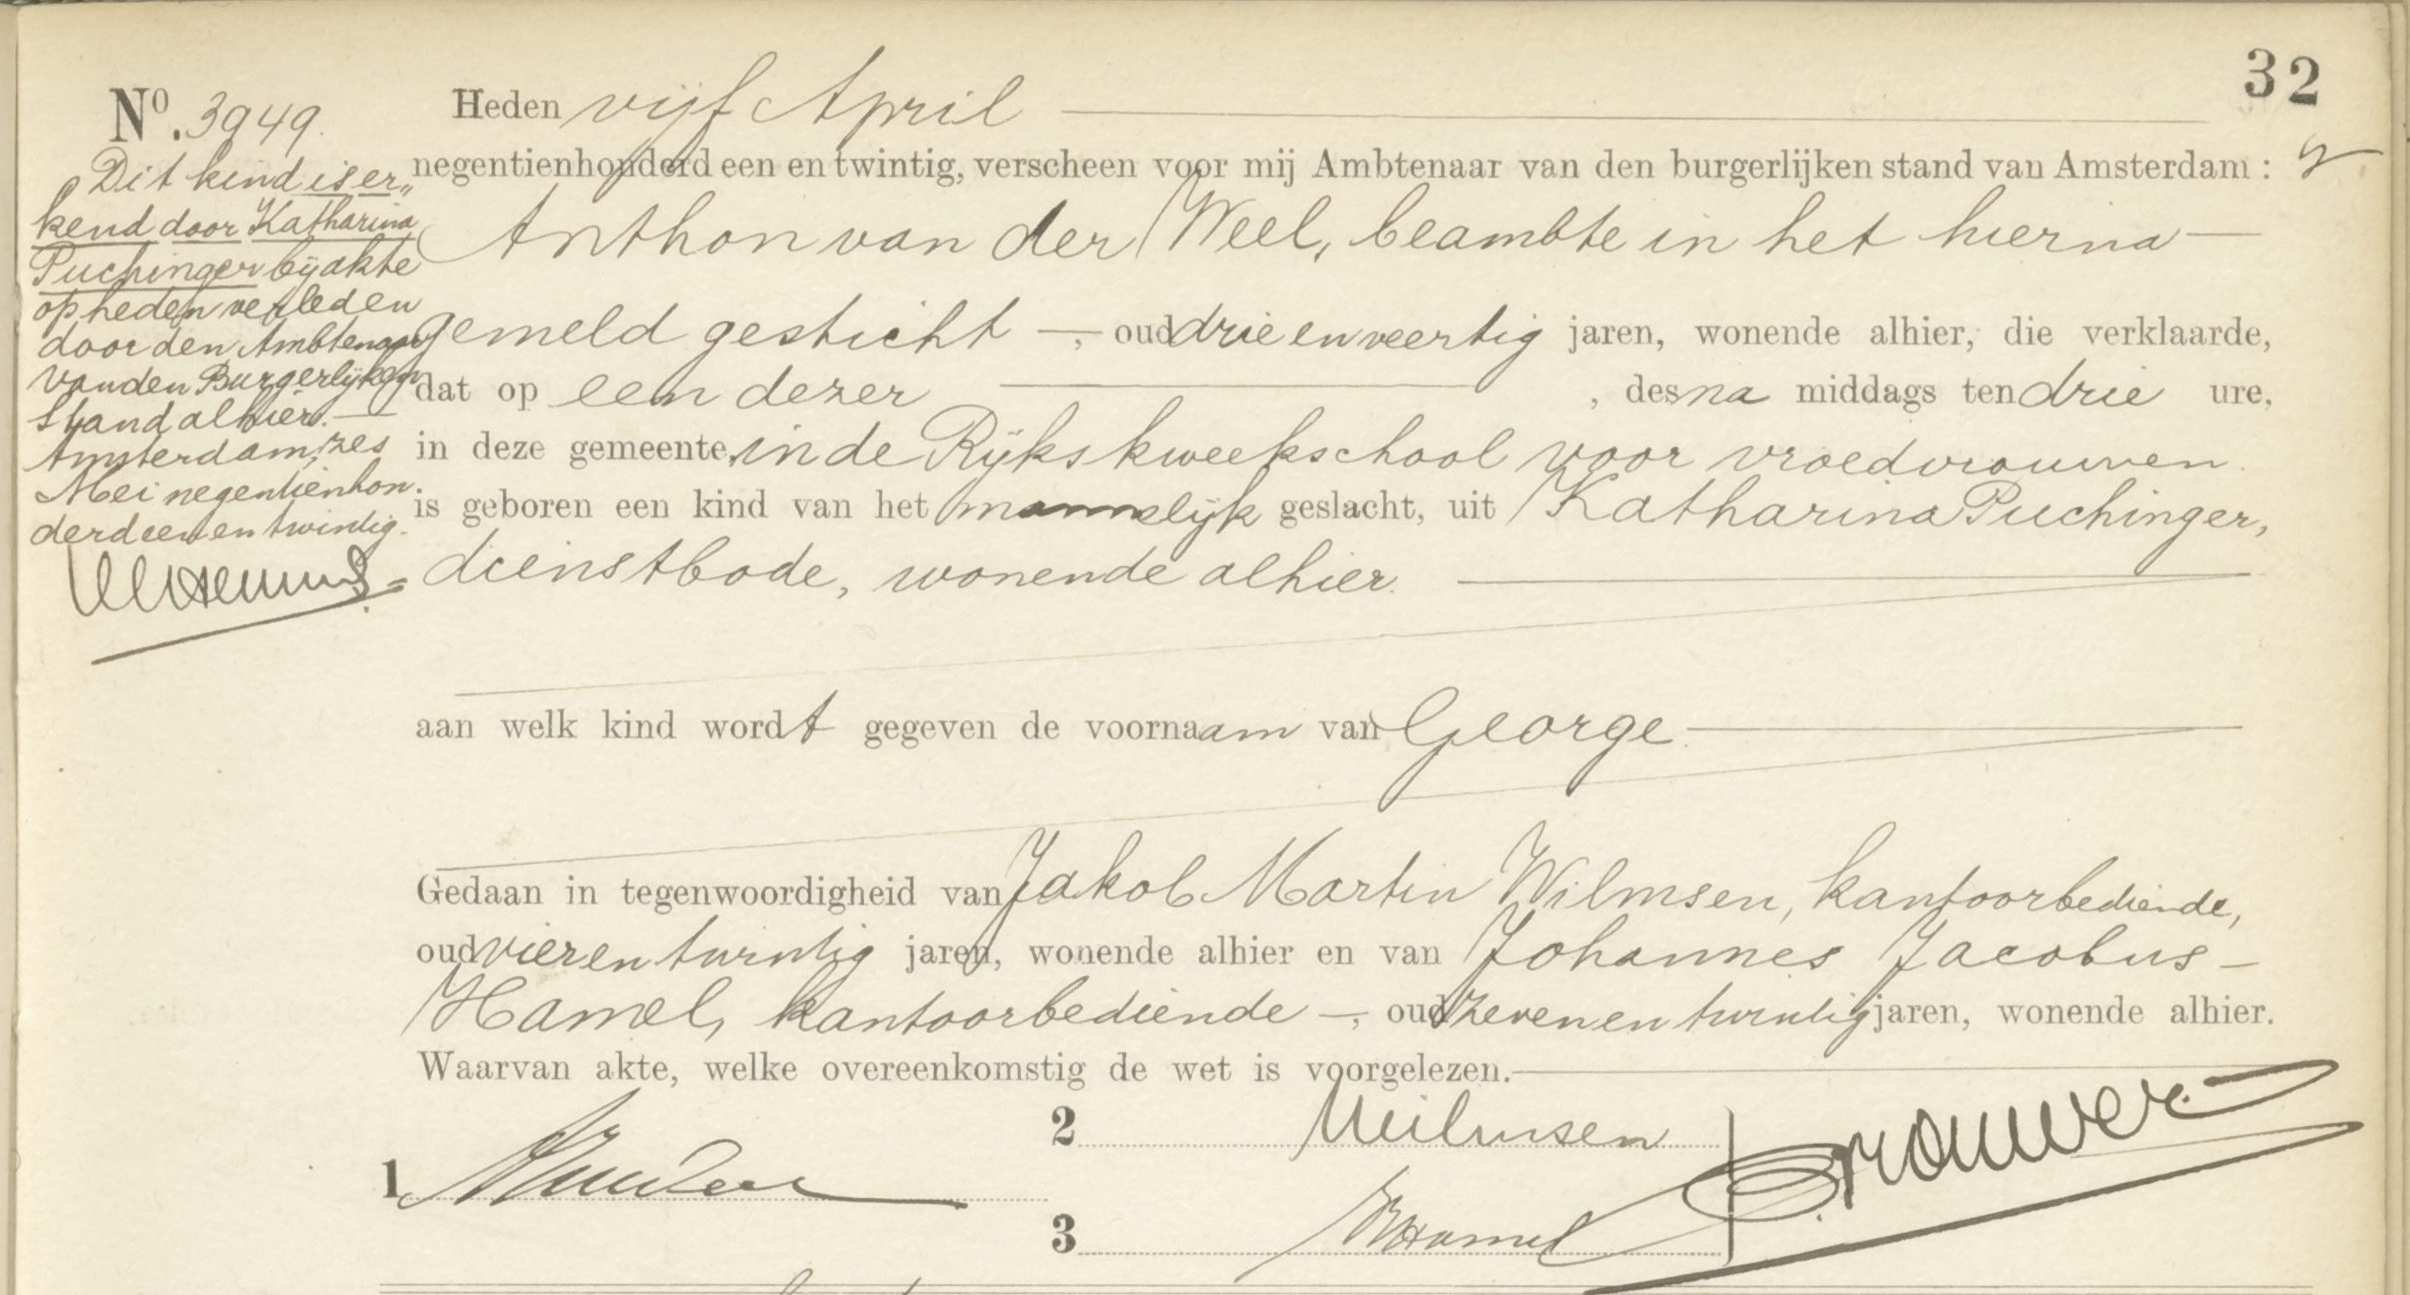 32
No. 3949.
Heden vijf April
negentienhonderd een en twintig, verscheen voor mij Ambtenaar van den burgerlijken stand van Amsterdam :
Anthon van der Weel, beambte in het hierna
gemeld gesticht —, oud drie en veertig jaren, wonende alhier, die verklaarde,
dat op een dezer , des na middags ten drie ure,
in deze gemeente, in de Rijkskweekschool voor vroedvrouwen
is geboren een kind van het mannelijk geslacht, uit Katharina Puchinger,
dienstbode, wonende alhier.
aan welk kind wordt gegeven de voornaam van George
Gedaan in tegenwoordigheid van Jakob Martin Wilmsen, kantoorbediende,
oud vier en twintig jaren, wonende alhier en van Johannes Jacobus
Hamel, kantoorbediende —, oud zeven en twintig jaren, wonende alhier.
Waarvan akte, welke overeenkomstig de wet is voorgelezen.
Dit kind is er„
kend door Katharina
Puchinger bij akte
op heden verleden
door den Ambtenaar
van den Burgerlijken
Stand alhier.
Amsterdam, zes
Mei negentienhon
derd een en twintig.
1
2 Wilmsen
3 Hamel
Brouwer